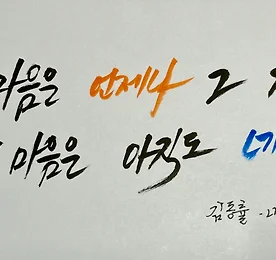 마음은 언제나 그
마음은 아직도
김동률 -